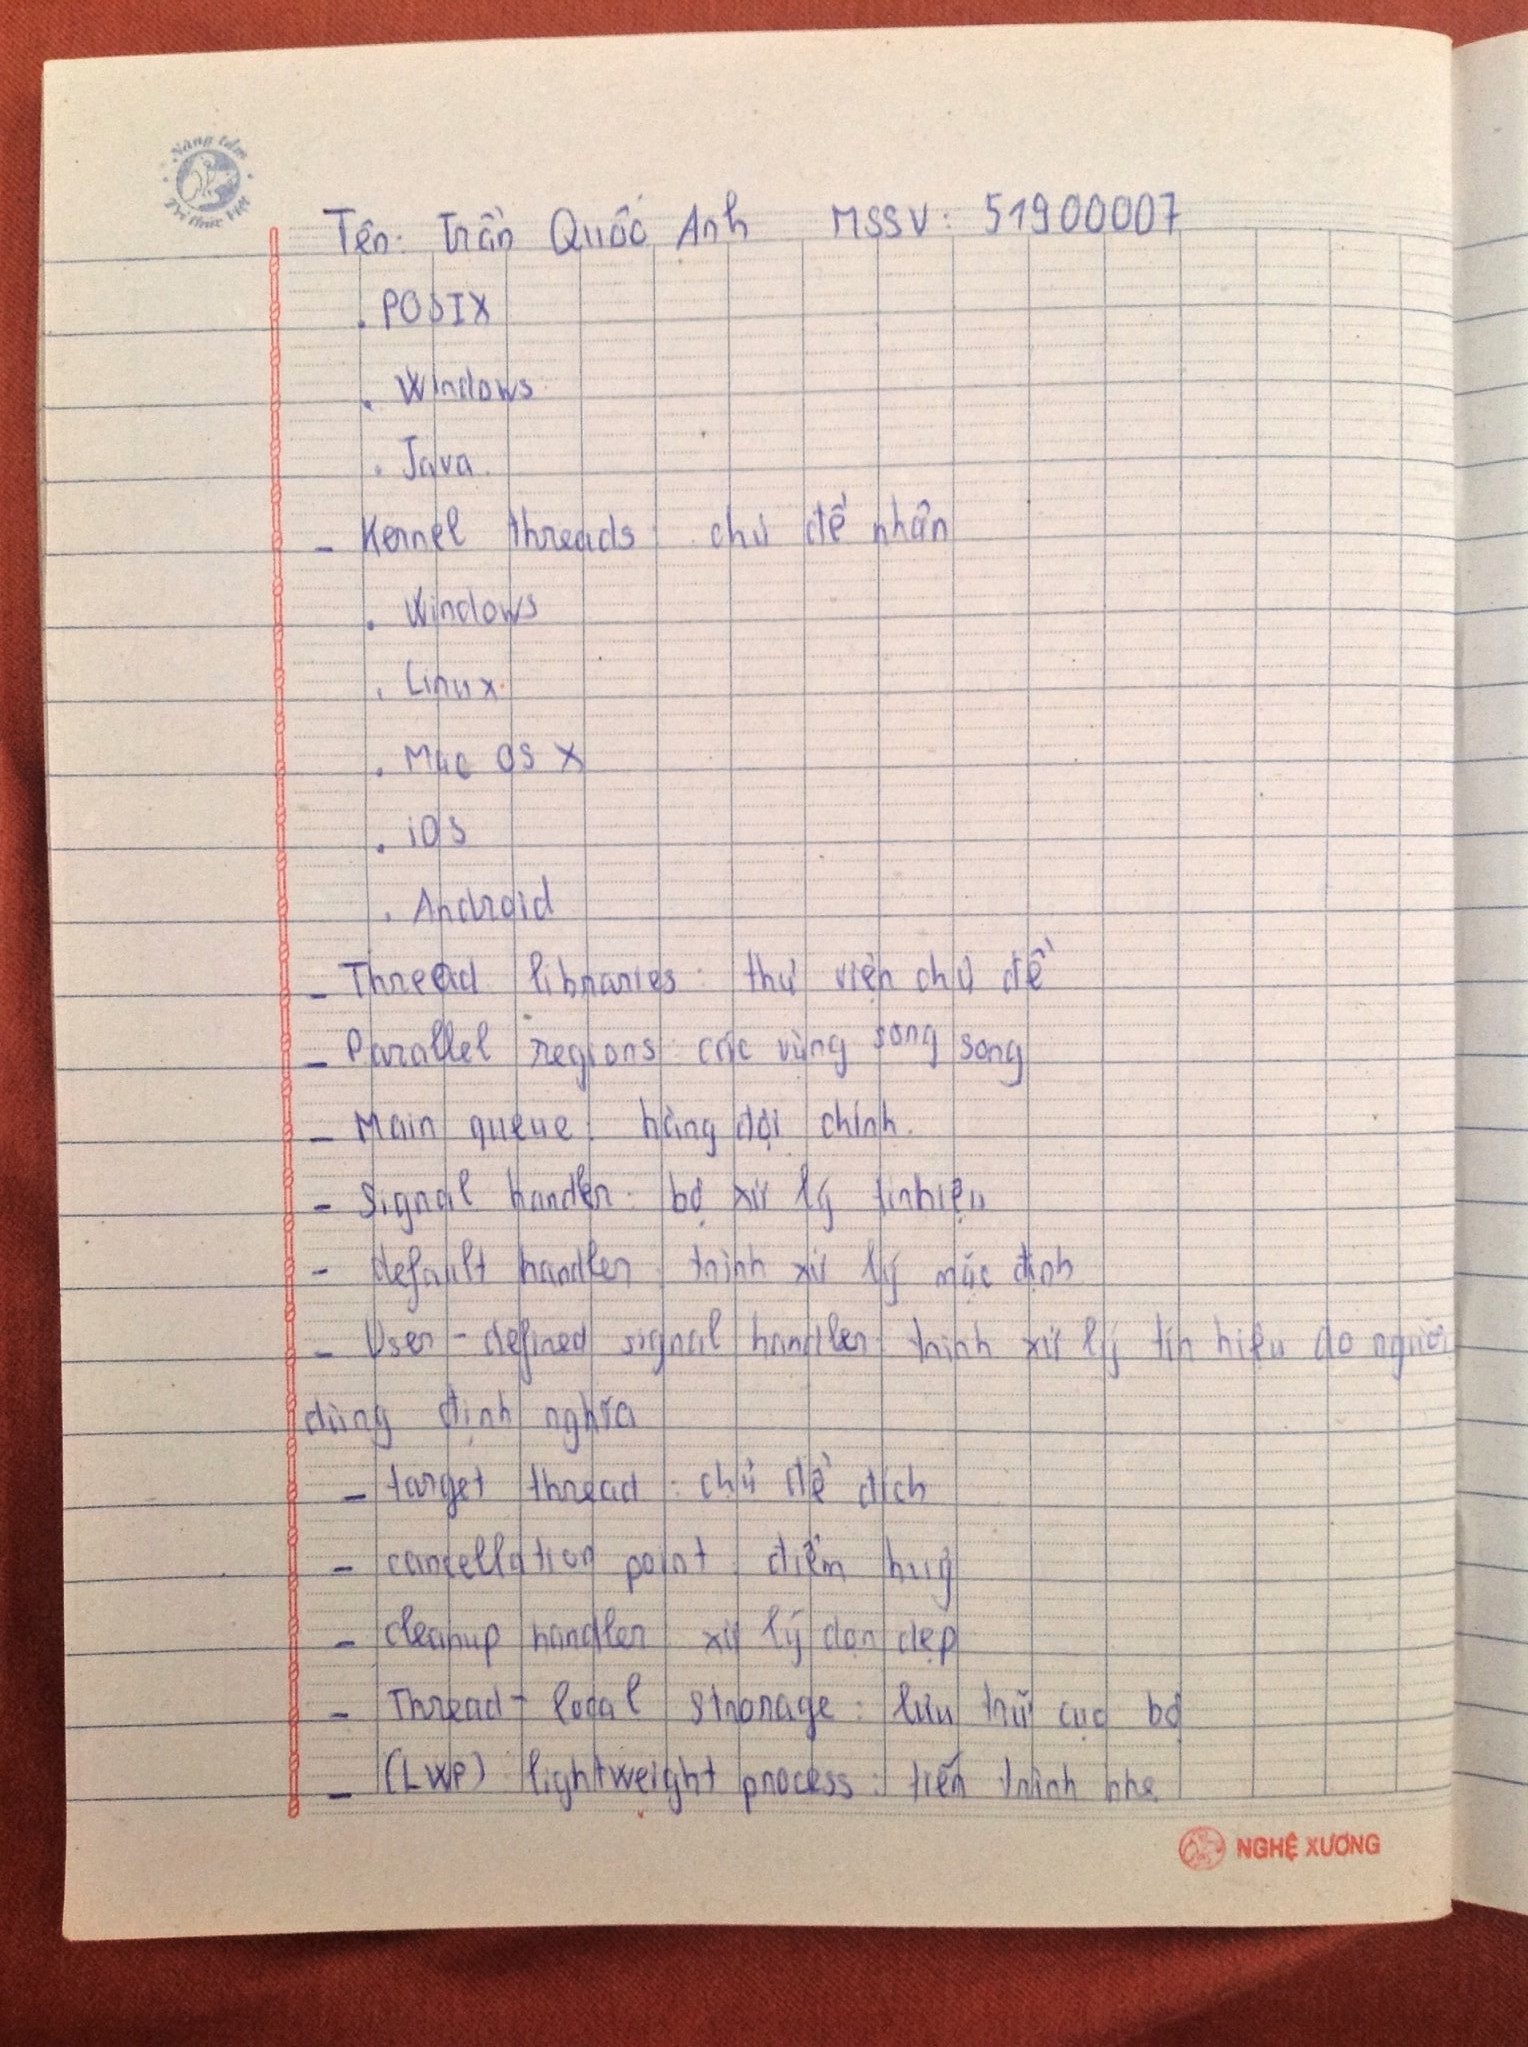 Nâng tầm
Tri thức Việt
Tên: Trần Quốc Anh MSSV: 51900007
. POSIX
. Windows
. Java.
- Kernel threads: chủ đề nhân
. Windows
. Linux.
. Mac OS X
. iOS
. Android
- Thread libraries: thư viện chủ đề
- Parallel regions: các vùng song song
- Main queue: hàng đợi chính.
- Signal handler: bộ xử lý tín hiệu
- default handler: trình xử lý mặc định
- User-defined signal handler: trình xử lý tín hiệu do người
dùng định nghĩa
- target thread: chủ đề đích
- cancellation point: điểm huỷ
- cleanup handler: xử lý dọn dẹp
- Thread-local stronage: lưu trữ cục bộ
- (LWP) lightweight process: tiến trình nhẹ
NGHỆ XƯƠNG